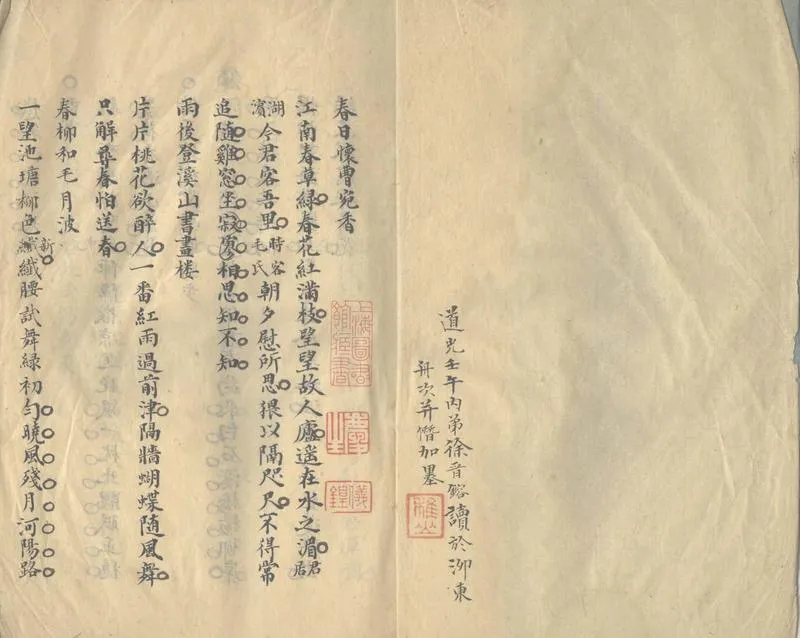 道光壬午內弟徐晉鎔讀於泖東
舟次并僭加墨
春日懷曹宛香
江南春草綠春花紅滿枝望望故人廬遥在水之湄君居
湖濱今君客吾里時客毛氏朝夕慰所思猥以隔咫尺不得常
追隨雞窓坐寂寥相思知不知
雨後登溪山書畫楼
片片桃花欲醉人一番紅雨過前津隔牆蝴蝶随風舞
只解尋春怕送春
春柳和毛月波
一望池塘柳色新纖纖腰試舞綠初勻曉風殘月河陽路
上海圖書館藏書